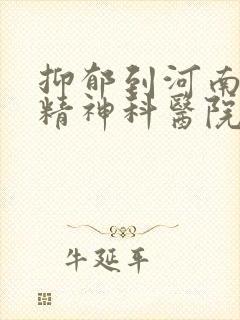 抑郁到河南
精神科醫院
牛延年